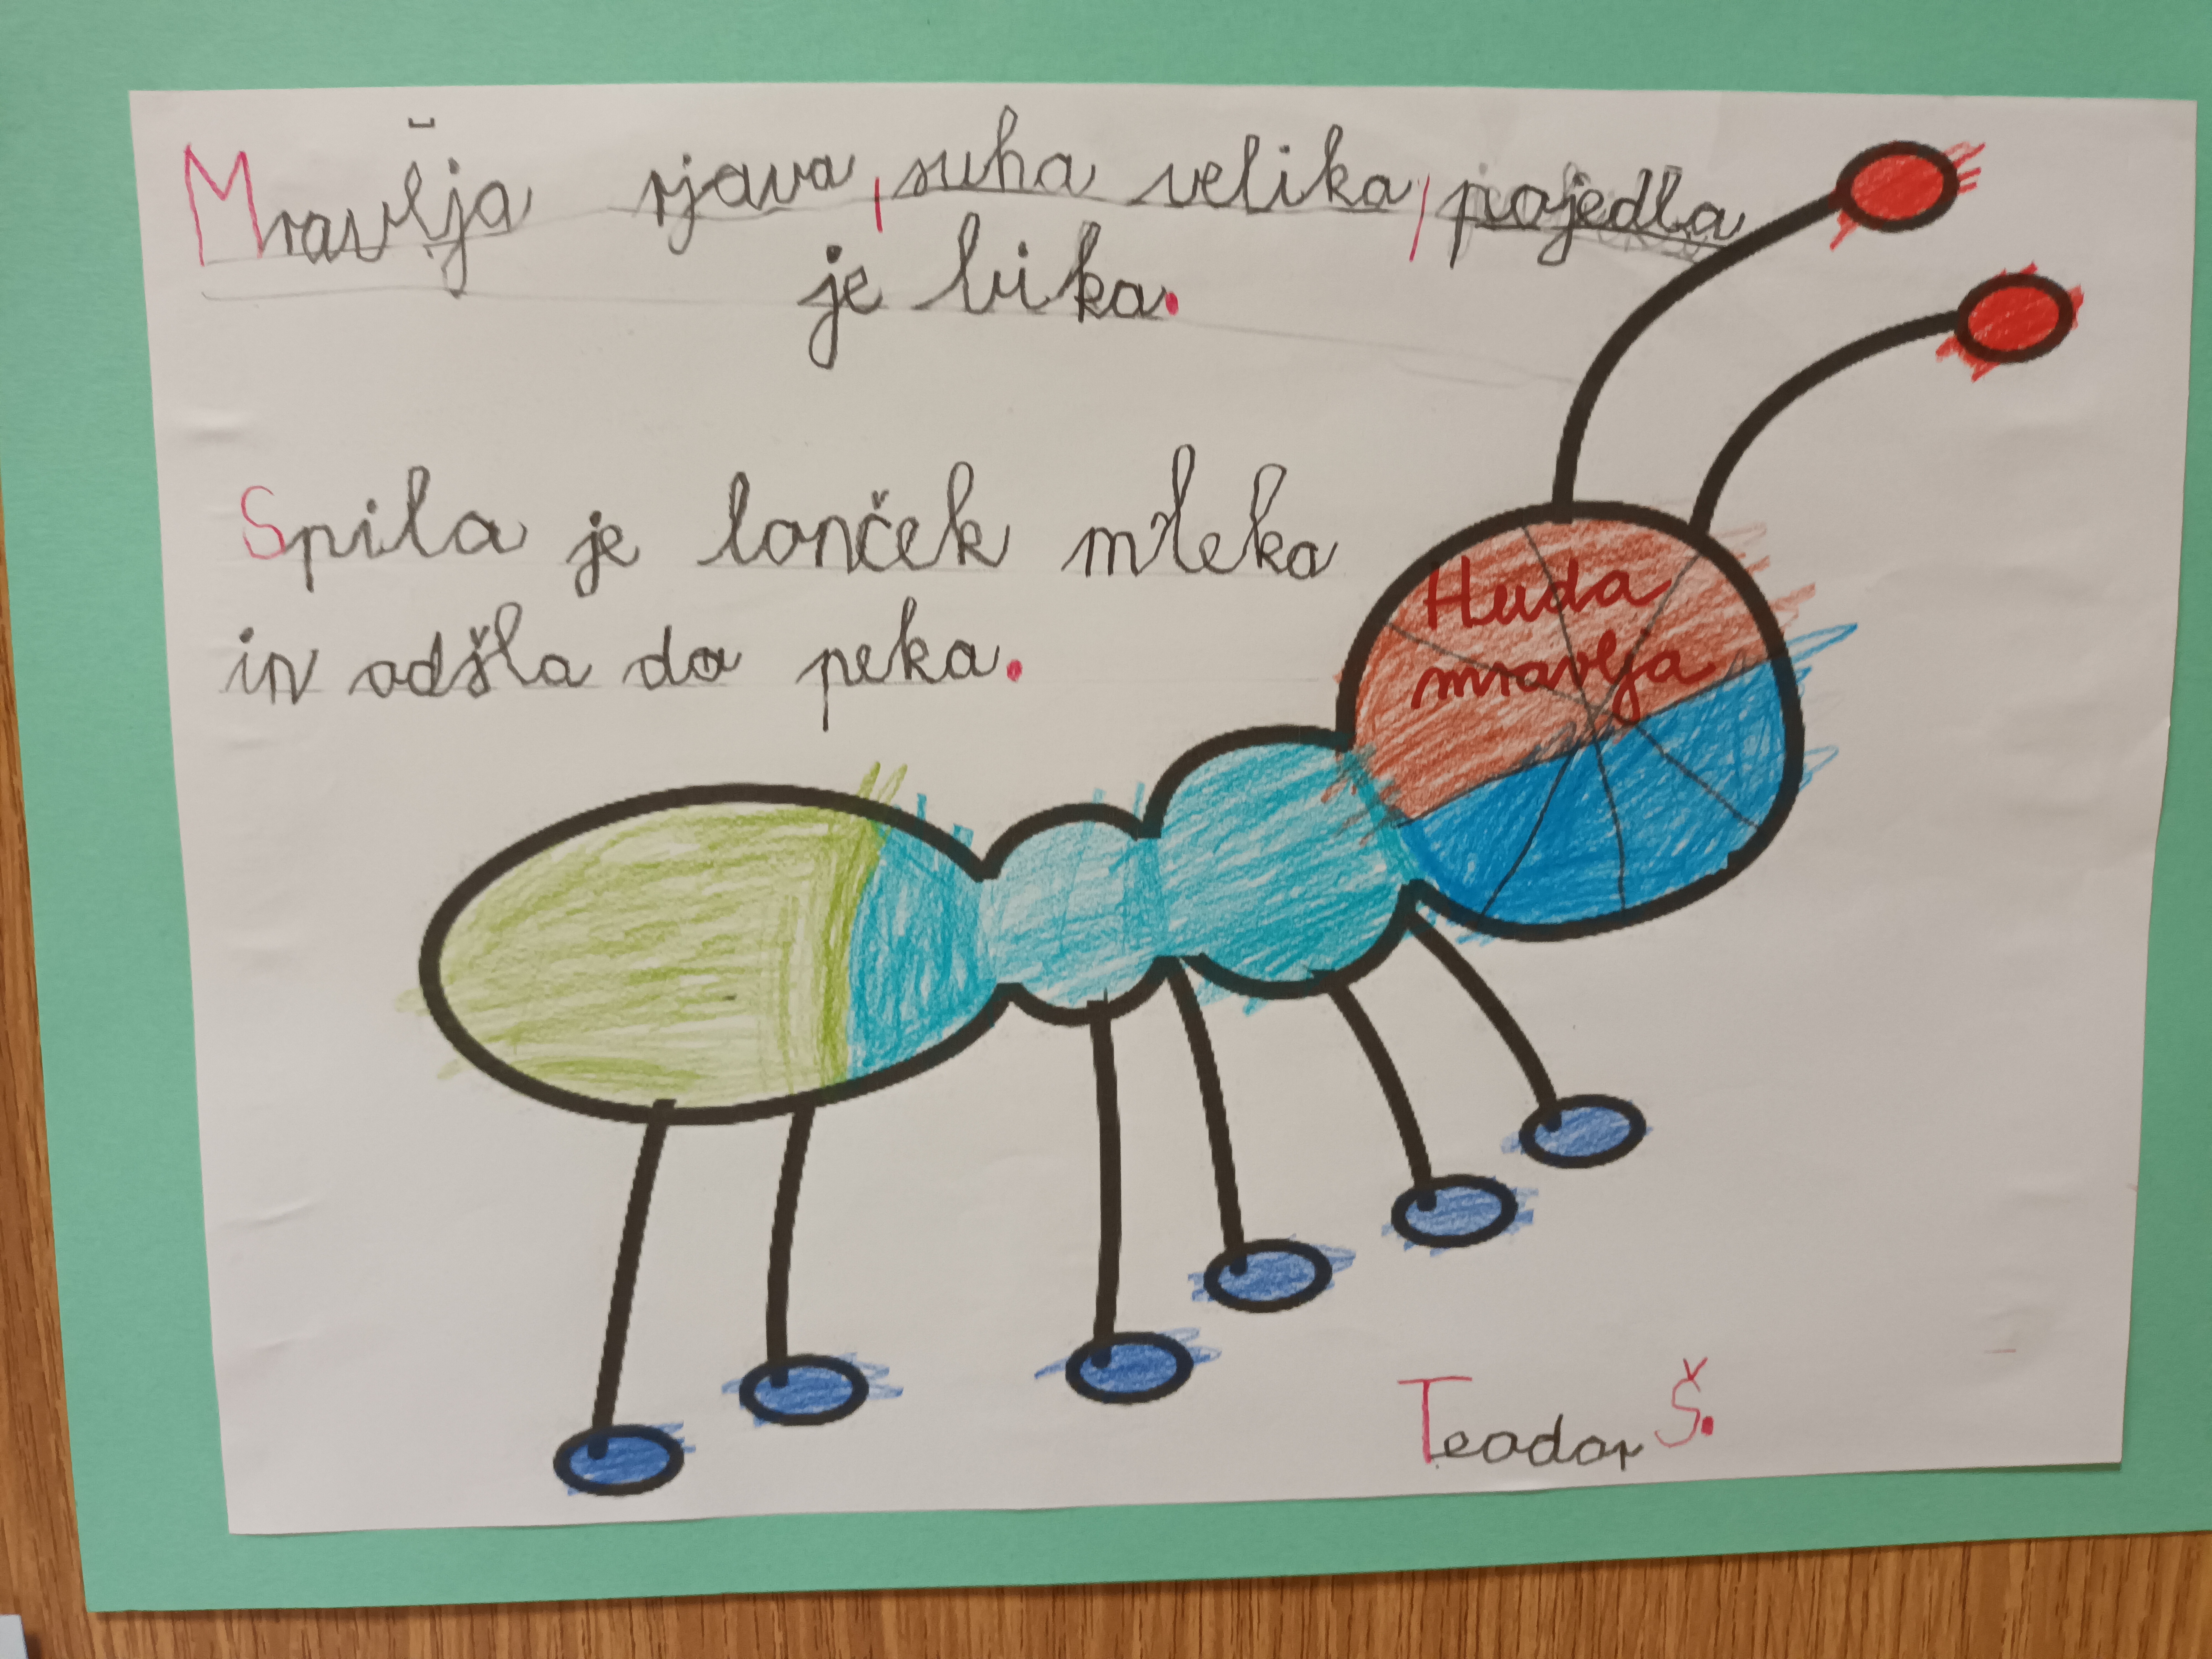 Mravlja rjava, suha velika, pojedla
je bika.
Spila je lonček mleka
in odšla do peka.
Huda
mravlja
Teodor Š.